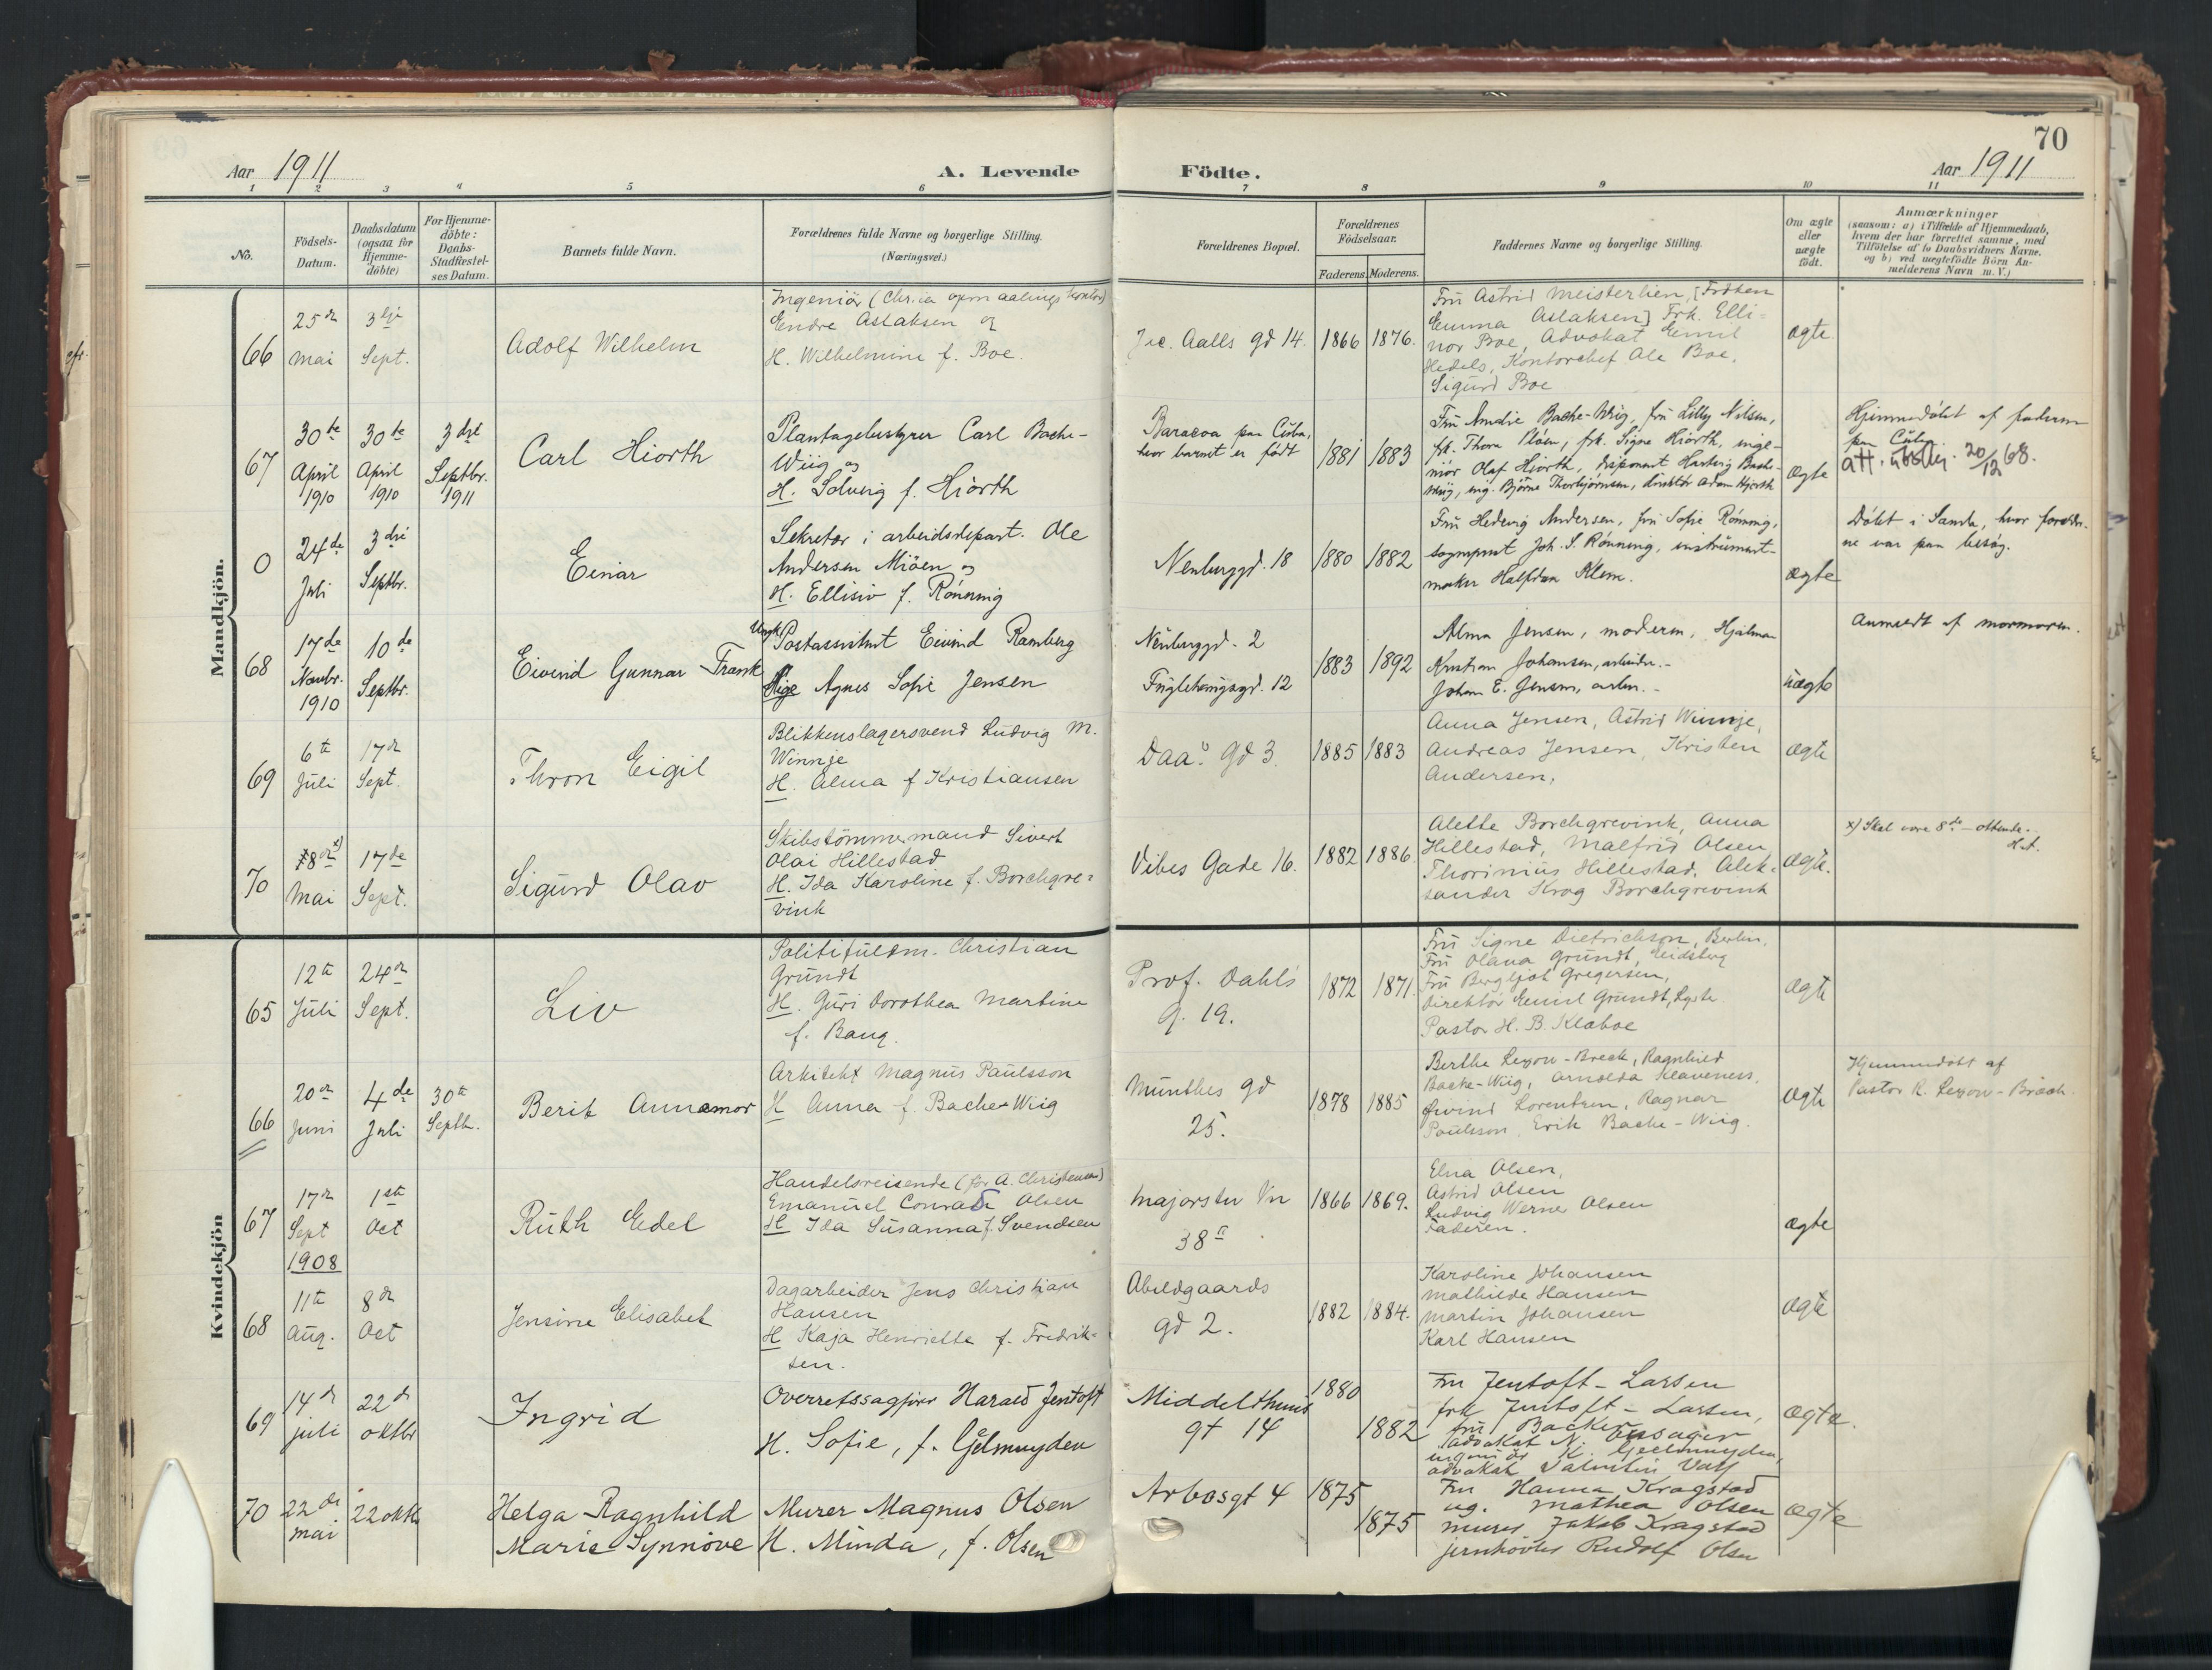 70
Aar 1911
A. Levende
Födte.
Aar 1911
1 2 3 4 5 6 7 8 9 10 11
No.
Födsels-
Datum.
Daabsdatum
(ogsaa for
Hjemme-
döbte)
For Hjemme-
döbte:
Daabs-
Stadfæstel-
ses Datum.
Barnets fulde Navn.
Forældrenes fulde Navne og borgerlige Stilling.
(Næringsvei.)
Forældrenes Bopæl.
Forældrenes
Födselsaar.
Faderens. Moderens.
Faddernes Navne og borgerlige Stilling.
Om ægte
eller
uægte
födt.
Anmærkninger
(saasom: a) i Tilfælde af Hjemmedaab,
hvem der har forrettet samme, med
Tilföielse af to Daabsvidners Navne,
og b) ved uægtefödte Börn An-
melderens Navn m. V.)
Mandkjön.
66
25de
Mai
3dje
Sept.
Adolf Wilhelm
Ingeniör (Chr.ia opmaalings kontor)
Endre Aslaksen og
H. Wilhelmine f. Boe.
Jac. Aalls gd 14.
1866 1876.
Fru Astrid Meisterlien, [Fröken
Emma Aslaksen] Frk. Elli-
nor Boe, Advokat Emil
Hedels, Kontorchef Ole Boe,
Sigurd Boe
ægte
67
30te
April
1910
30te
April
1910
3die
Septbr.
1911
Carl Hiorth
Plantagebestyrer Carl Backe-
Wiig og
H. Solveig f. Hiorth
Baracoa paa Cuba,
hvor barnet er födt
1881 1883
Fru Amalie Backe-Wiig, fru Lilly Nilsen,
frk. Thora Pløen, frk. Signe Hiorth, inge-
niör Olaf Hiorth, disponent Hartvig Backe-
Wiig, ing. Björne Thorbjörnsen, direktör Adam Hjorth
ægte
Hjemmedöbt af faderen
paa Cuba.
att. utst. 20/12 68.
0
24de
Juli
3die
Septbr.
Einar
Sekretær i arbeidsdepart. Ole
Andersen Miöen og
H. Ellisiv f. Rönning
Neuberggd. 18
1880 1882
Fru Hedevig Andersen, fru Sofie Rönning,
sogneprest Joh. S. Rönning, instrument-
maker Halfdan Klem.
ægte
Döbt i Sande, hvor foreldre-
ne var paa besög.
68
17de
Novbr.
1910
10de
Septbr.
Eivind Gunnar Frank
Ungk. Postassistent Eivind Ramberg
Pige Agnes Sofie Jensen
Neuberggd. 2
Fuglehaugsgd. 12
1883 1892
Alma Jensen, moderen, Hjalmar
Kristian Johansen, arbeider.-
Johan E. Jensen, arbei.-
uægte
Anmeldt af mormoren.
69
6te
Juli
17de
Sept.
Thron Eigil
Blikkenslagersvend Ludvig M.
Winnje
H. Alma f. Kristiansen
Daas Gd 3.
1885 1883
Anna Jensen, Astrid Winnje,
Andreas Jensen, Kristen
Andersen.
ægte
70
8de x)
Mai
17de
Sept.
Sigurd Olav
Skibstömmermand Sivert
Olai Hillestad
H. Ida Karoline f. Borchgre-
vink
Vibes Gade 16.
1882 1886.
Alette Borchgrevink, Anna
Hillestad, Malfrid Olsen,
Thorinius Hillestad, Alek-
sander Krog Borchgrevink
ægte.
x) Skal være 8de - ottende.
H.A.
Kvindekjön
65
12te
Juli
24de
Sept.
Liv
Politifuldm. Christian
Grundt
H. Guri Dorothea Martine
f. Bang.
Prof. Dahls
g. 19.
1872 1871.
Fru Signe Dietrichson, Berlin,
Fru Olava Grundt, Eidsberg
Fru Bergljot Gregersen,
Direktör Emil Grundt,
Pastor H. B. Klæboe
ægte
66
20de
Juni
4de
Juli
30te
Septbr.
Berit Annemor
Arkitekt Magnus Paulsson
H Anna f. Backe-Wiig
Munthes gd
25.
1878 1885
Berthe Lexow-Breck, Ragnhild
Backe-Wiig, Arnolda Klaveness,
Øivind Lorentzen, Ragnar
Paulsson, Erik Backe-Wiig.
ægte
Hjemmedöbt af
Pastor R. Lexow-Breck.
67
17de
Sept
1908
1ste
Oct
Ruth Edel
Handelsreisende (for A. Christensen)
Emanuel Conrad Olsen
H Ida Susanna f. Svendsen
Majorstu Vn
38 a
1866 1869.
Elna Olsen,
Astrid Olsen
Ludvig Werner Olsen
Faderen.
ægte
68
11te
Aug.
8de
Oct
Jensine Elisabet
Dagarbeider Jens Christian
Hansen
H Kaja Henriette f. Fredrik-
sen.
Abildgaards
gd 2.
1882 1884.
Karoline Johansen
Mathilde Hansen
Martin Johansen
Karl Hansen
ægte
69
14de
juli
22de
oktbr
Ingrid
Overretssagfører Harald Jentoft
H. Sofie, f. Gjelmuyden
Middelthuns
gt 14
1880
1882
Fru Jentoft-Larsen
frk Jentoft-Larsen,
fru Backer
advokat N.
ingeniör K. Geelmuyden,
advokat Valentin Voss
ægte.
70
22de
mai
22 oktbr
Helga Ragnhild
Marie Synnöve
Murer Magnus Olsen
H. Minda, f. Olsen
Arbosgt 4
1875
1875
Fru Hanna Kragstad
ug. Mathea Olsen
murer Jakob Kragstad
jernhövler Rudolf Olsen
ægte